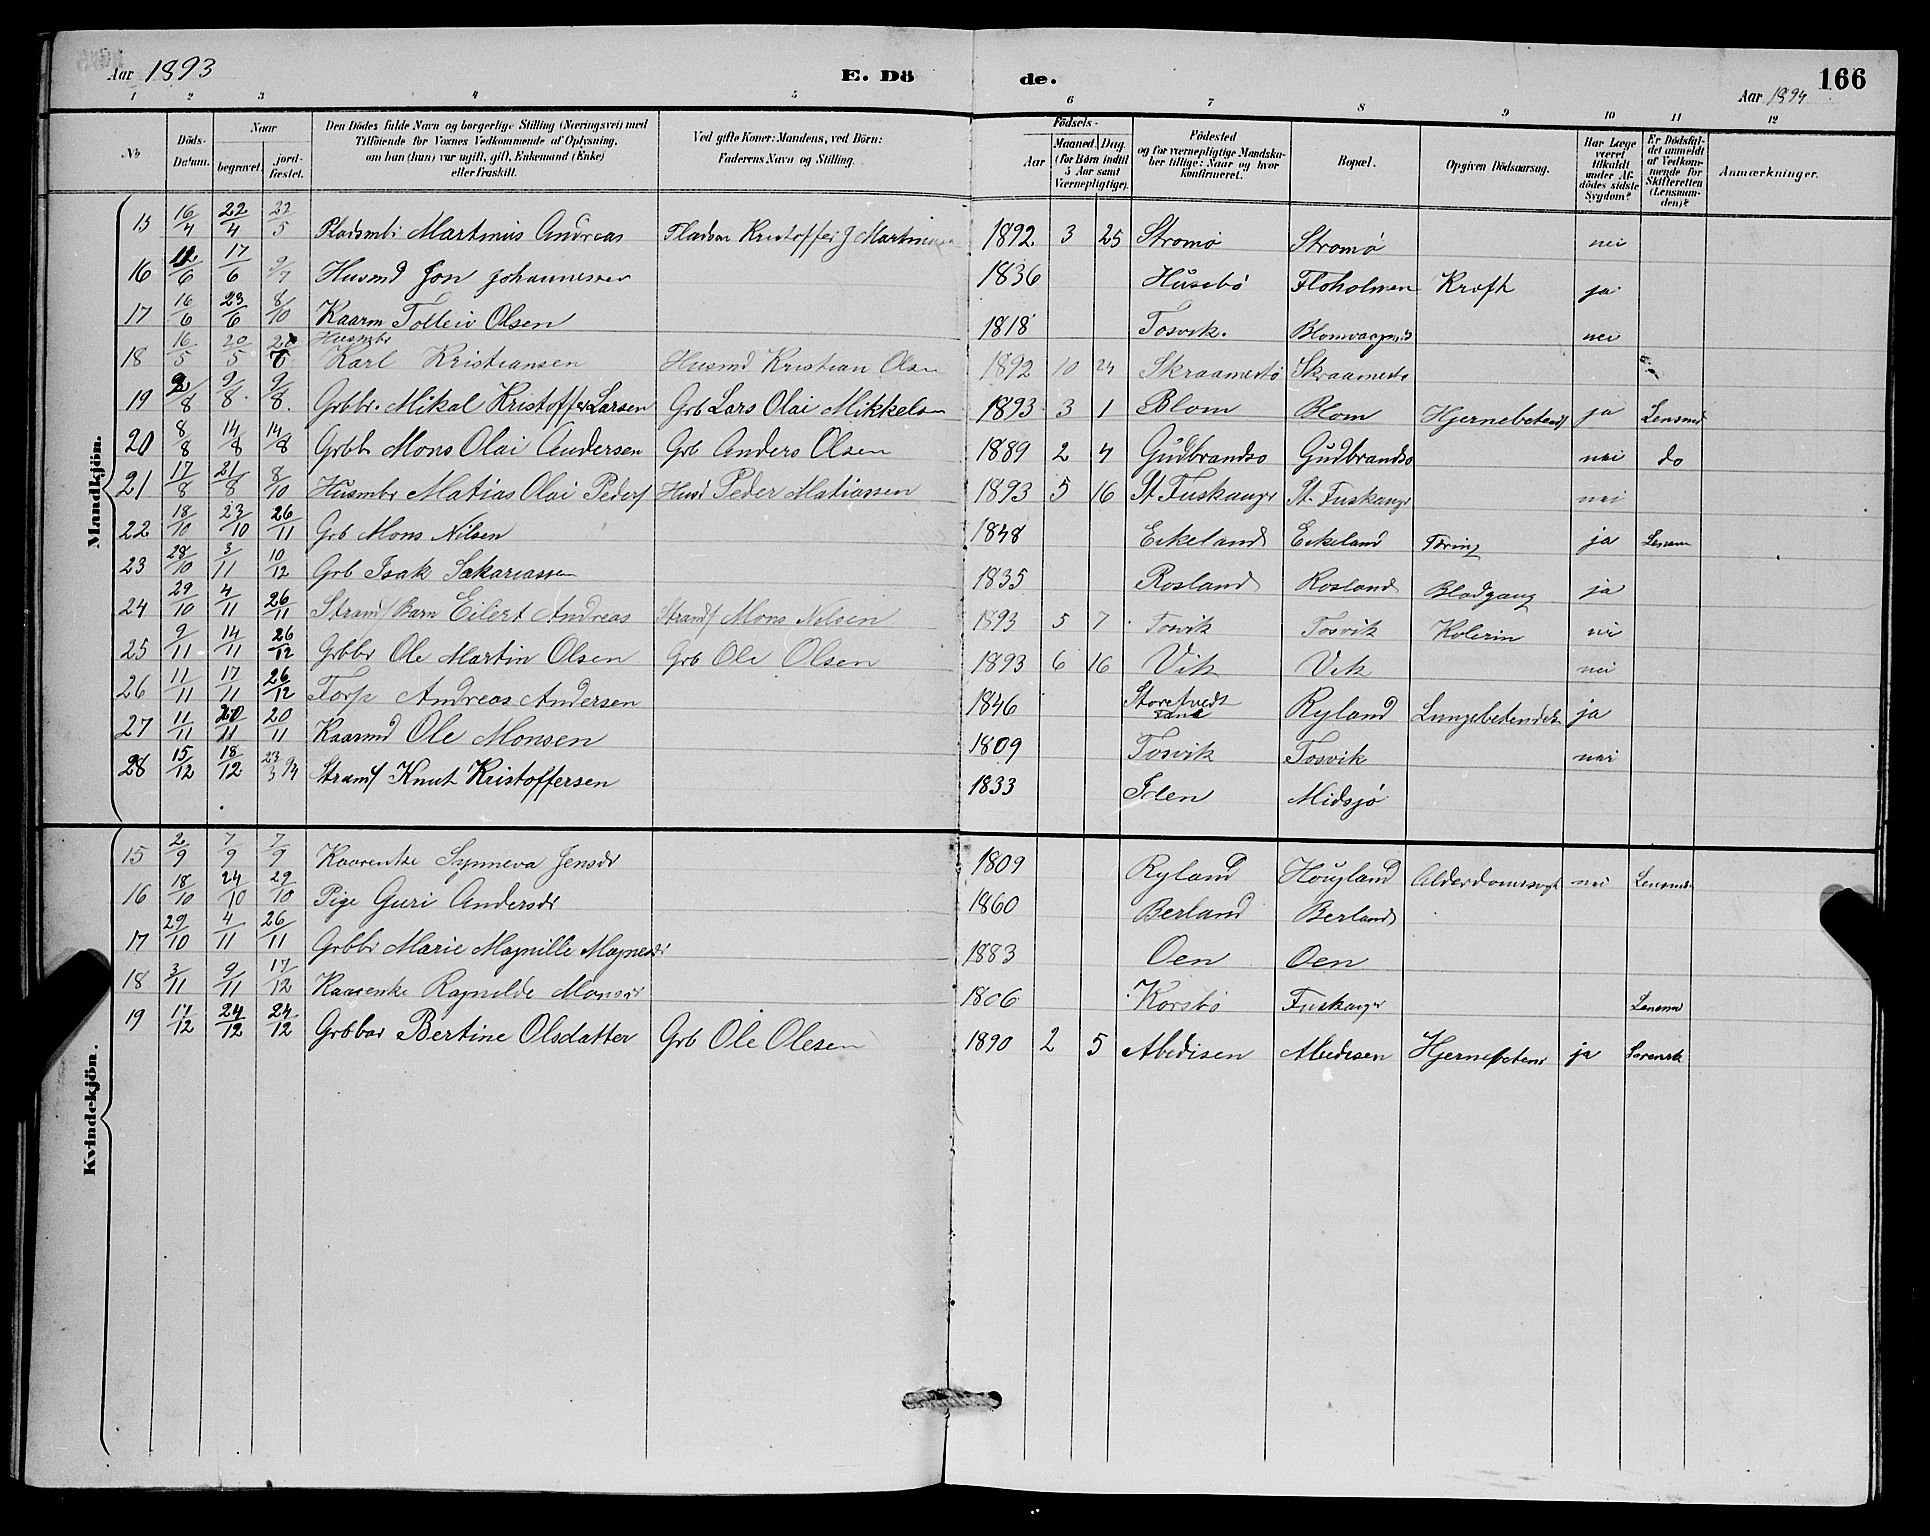 Aar 1893
E. Dö
de.
Aar 1894
166
1 2 3 4 5 6 7 8 9 10 11 12
No
Döds-Datum.
Naar
begravet.
jordfæstet.
Den Dödes fulde Navn og borgerlige Stilling (Næringsvei) med
Tilföiende for Voxnes Vedkommende af Oplysning,
om han (hun) var ugift, gift, Enkemand (Enke)
eller fraskilt.
Ved gifte Koner: Mandens, ved Börn:
Faderens Navn og Stilling.
Födsels-
Aar
Maaned. Dag.
(for Börn indtil
5 Aar samt
Værnepligtige).
Födested
og for værnepligtige Mandskaber tillige: Naar og hvor
konfirmeret.
Bopæl.
Opgiven Dödsaarsag.
Har Læge
været
tilkaldt
under Afdödes sidste
Sygdom?
Er Dödsfaldet anmeldt
af Vedkommende for
Skifteretten
(Lensmanden)?
Anmærkninger.
Mandkjön.
15 16/4 22/4 22/5 Pladsmbr Martinus Andreas 1892 3 25 Stromø Stromø nei
16 12/6 17/6 9/7 Husmd Jon Johannessen 1836 Husebø Floholmen Kræft ja
17 16/6 23/6 8/10 Kaarm Tolleiv Olsen 1818 Tosvik. nei
18 16/5 20/5 Husmbr Karl Kristiansen Husmd Kristian Olsen 1892 10 24 Skraamestø Skraamestø
19 2/8 9/8 9/8 Grbbr. Mikal Kristoffer Larsen Grb Lars Olai Mikkelsen 1893 3 1 Blom Blom Hjernebetend ja Lensmd
20 8/8 14/8 14/8 Grbb Mons Olai Andersen Grb Anders Olsen 1889 2 4 Gudbrandsø Gudbrandsø nei do
21 17/8 21/8 8/10 Husmbr Matias Olai Peders Husd Peder Matiassen 1893 5 16 St. Fuskanger St. Fuskanger nei
22 18/10 23/10 26/11 Grb Mons Nilsen 1848 Eikeland Eikeland Tæring ja Lensm
23 28/10 3/11 10/12 Grb Isak Sakariassen 1835 Rosland Rosland Blodgang ja
24 29/10 4/11 26/11 Strand/ Barn Eilert Andreas Strand/ Mons Nilsen 1893 5 7 Tosvik Tosvik Kolerin nei
25 9/11 14/11 26/12 Grbbr Ole Martin Olsen Grb Ole Olsen 1893 6 16 Vik Vik nei
26 11/11 17/11 26/12 Torp Andreas Andersen 1846 Storetvedt Ryland Lungebetendelse ja
27 11/11 20/11 20/11 Kaarmd Ole Monsen 1809 Tosvik Tosvik nei
28 15/12 18/12 23/3 94 Strand/ Knut Kristoffersen 1833 Iden Midsjø
Kvindekjön.
15 2/9 7/9 7/9 Kaarenke Synneva Jensdr 1809 Ryland Hougland Alderdomssvagh nei Lensmd
16 18/10 24/10 29/10 Pige Guri Andersdr 1860 Berland Berland
17 29/10 4/11 26/11 Grbbr Marie Magnille Magnesdr 1883 Oen Oen
18 3/11 9/11 17/12 Kaarenke Ragnilde Monsdr 1806 Korsbø Fuskanger Lensmd
19 17/12 24/12 24/12 Grbbar Bertine Olsdatter Grb Ole Olesen 1890 2 5 Abedisen Abedisen Hjernebetend ja